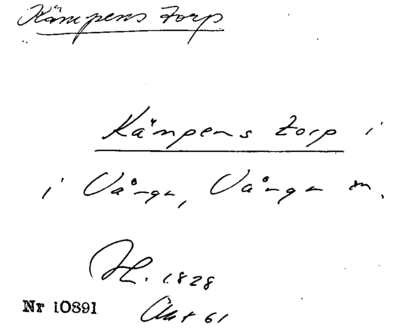 Kämpens torp
Kämpens torp i
i Vånga, Vånga sn.
H. 1828
Nr 10891
Akt 61